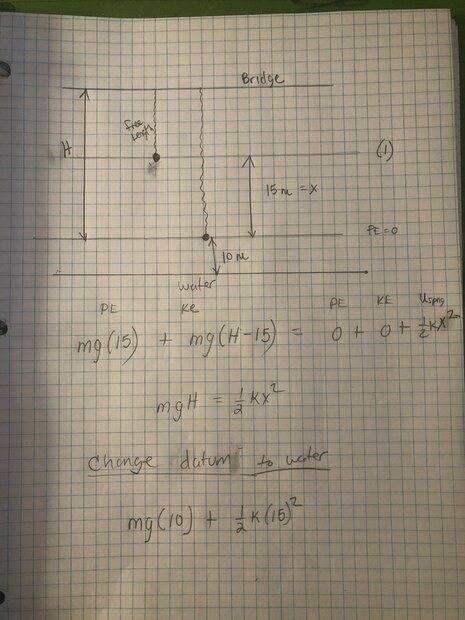 Bridge
free
Length
H
(1)
15 m = x
PE=0
10 m
water
PE KE PE KE Uspng
mg(15) + mg(H-15) = 0 + 0 + 1/2 kx²
mgH = 1/2 kx²
Change datum to water
mg(10) + 1/2 k(15)²